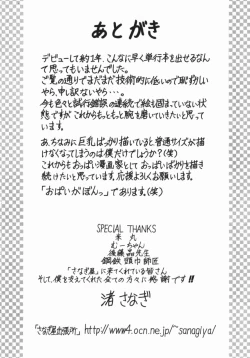 あとがき
デビューして約1年、こんなに早く単行本を出せるなんて思ってもいませんでした。
ご覧の通りでまだまだ技術的に低いので恥ずかしいやら、申し訳ないやら…。
今も色々と試行錯誤の連続で絵も固まっていない状態ですが これからもっともっと腕を磨いていきたいと思っています。
あ、ちなみに巨乳ばっかり描いていると普通サイズが描けなくなってしまうのは僕だけでしょうか?(笑)
これからもおっぱい漫画家として おっぱいばかりを描き続けたいと思っています。応援よろしくお願いします。
「おっぱいがぽんっ」であります。(笑)
SPECIAL THANKS
来丸
むーちゃん
後藤晶先生
鋼鉄頭巾師匠
「さなぎ屋」に来てくれている皆さん
そして、僕を支えてくれた全ての方々に感謝です!!
渚さなぎ
「さなぎ屋出張所」http://www4.ocn.ne.jp/~sanagiya/